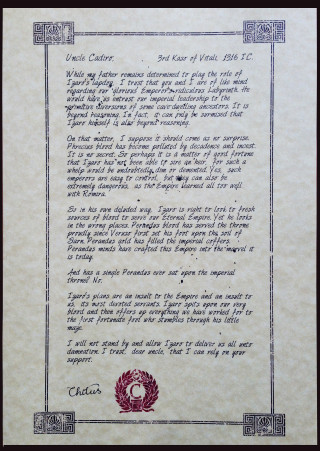 Uncle Cadiro, 3rd Kaso of Vitali, 1316 I.C.
While my father remains determined to play the role of
Igaro's lapdog, I trust that you and I are of like mind
regarding our 'glorious' Emperor's ridiculous Labyrinth. He
would have us entrust our imperial leadership to the
primitive diversions of some cave-dwelling ancestors. It is
beyond reasoning. In fact, it can only be surmised that
Igaro himself is also beyond reasoning.
On that matter, I suppose it should come as no surprise.
Phrecius blood has become polluted by decadence and incest.
It is no secret. So perhaps it is a matter of good fortune
that Igaro has not been able to sire an heir, for such a
whelp would be undoubtedly dim or demented. Yes, such
emperors are easy to control, but they can also be
extremely dangerous, as the Empire learned all too well
with Romira.
So in his own deluded way, Igaro is right to look to fresh
sources of blood to serve our Eternal Empire. Yet he looks
in the wrong places. Perandus blood has served the throne
proudly since Veruso first set his foot upon the soil of
Sarn. Perandus gold has filled the imperial coffers.
Perandus minds have crafted this Empire into the marvel it
is today.
And has a single Perandus ever sat upon the imperial
throne? No.
Igaro's plans are an insult to the Empire and an insult to
us, its most devoted servants. Igaro spits upon our very
blood and then offers up everything we have worked for to
the first fortunate fool who stumbles through his little
maze.
I will not stand by and allow Igaro to deliver us all unto
damnation. I trust, dear uncle, that I can rely on your
support.
Chitus
C